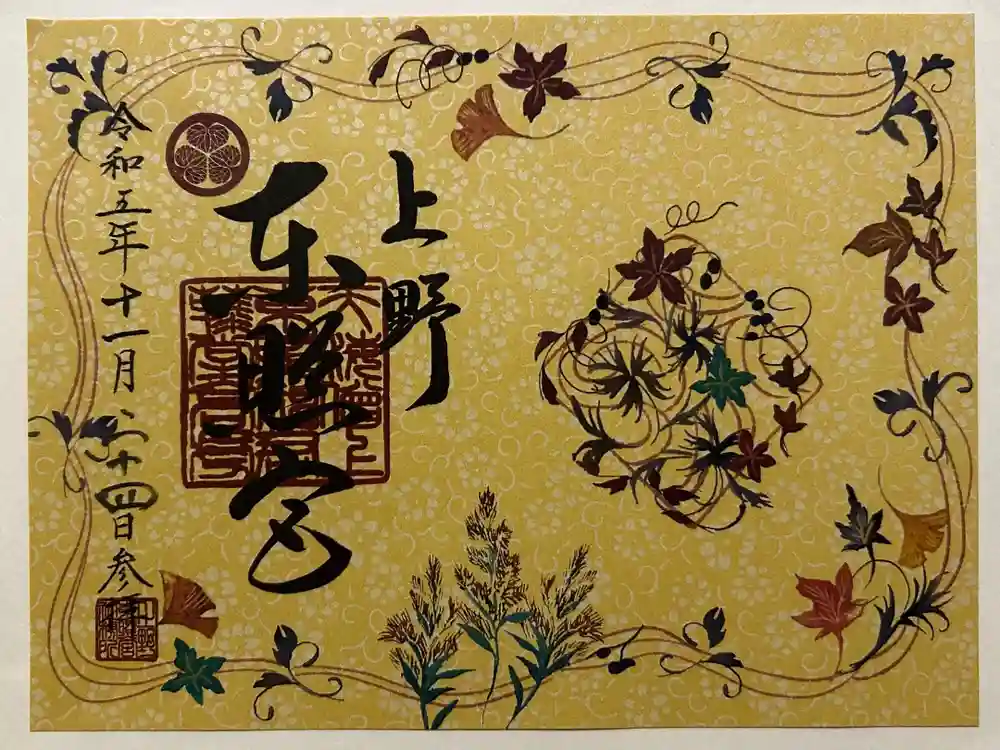 上野
東照宮
令和五年十一月二十四日参拝